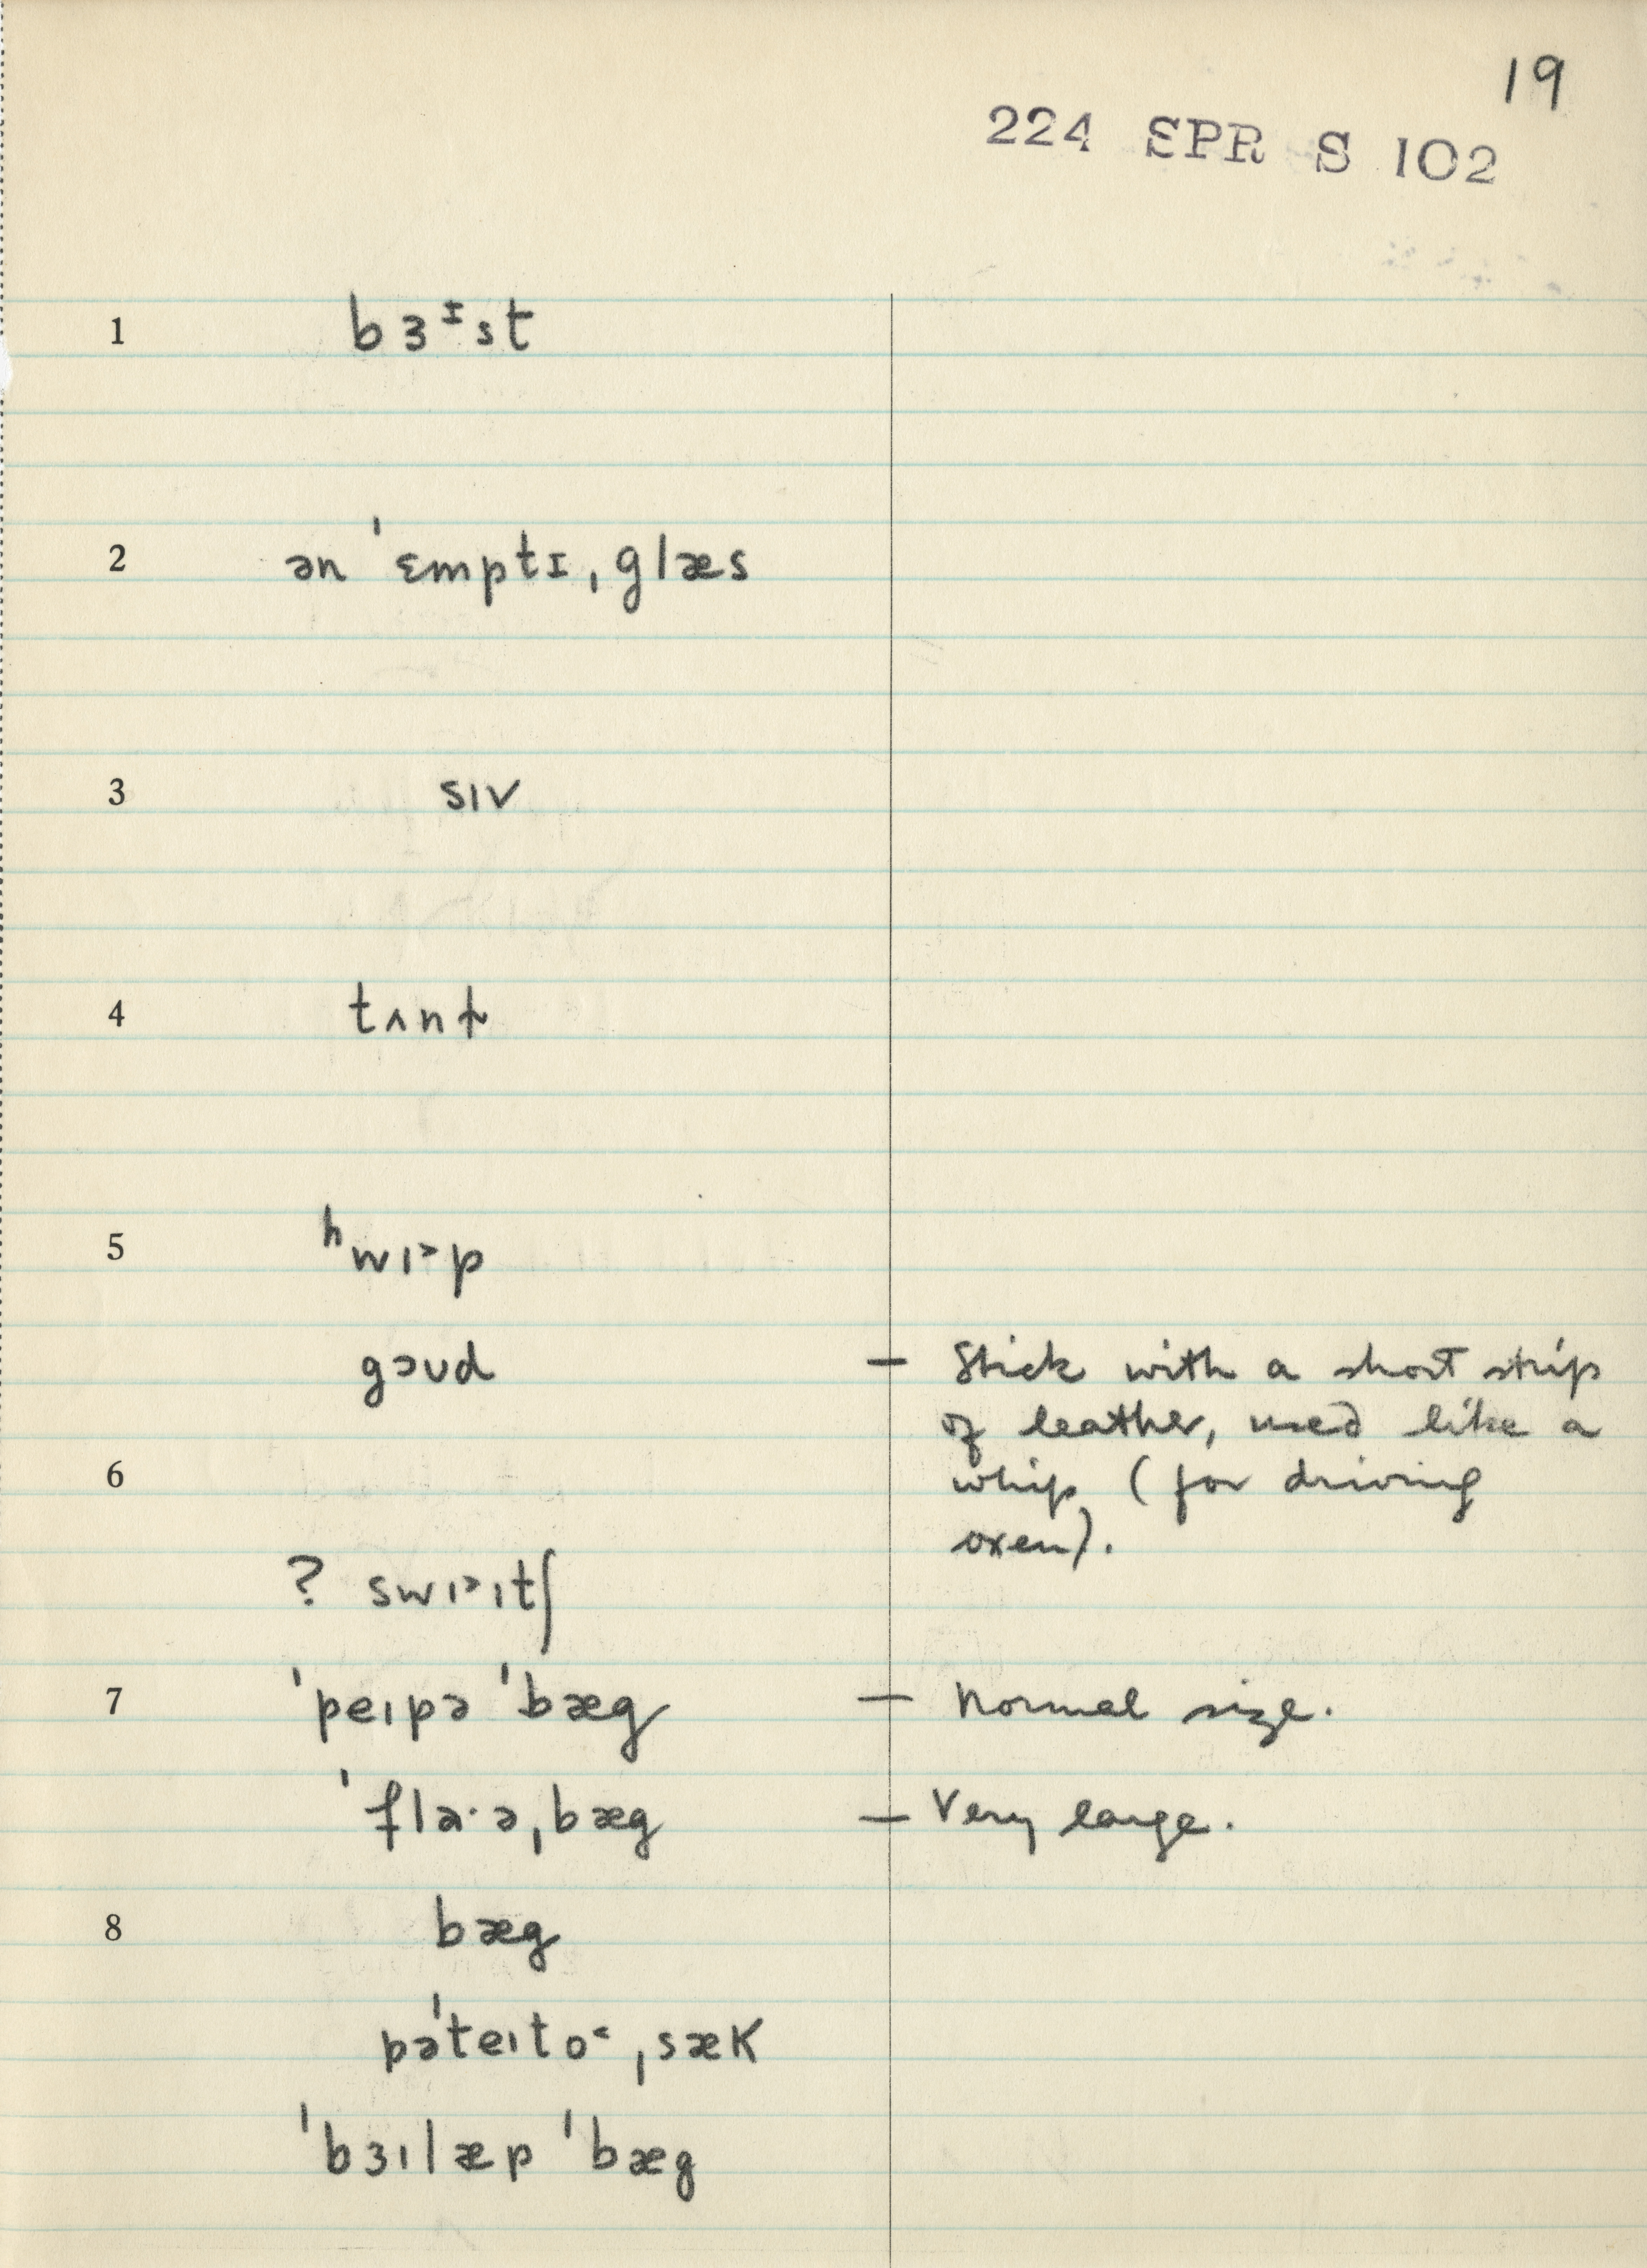 19
224 SPR S 102
1 bɜᶦst
2 ən ˈɛmptɪˌglæs
3 sɪv
4 tʌnt
5 ʰwɪ˃p
gɔʊd — Stick with a short strip
of leather, used like a
6 whip (for driving
oxen).
? swɪ˃ɪtʃ
7 ˈpeɪpə ˈbæg — Normal size.
ˈflɑ·əˌbæg — Very large.
8 bæg
pəˈteɪto˂ˌsæk
ˈbɜɪlæp ˈbæg